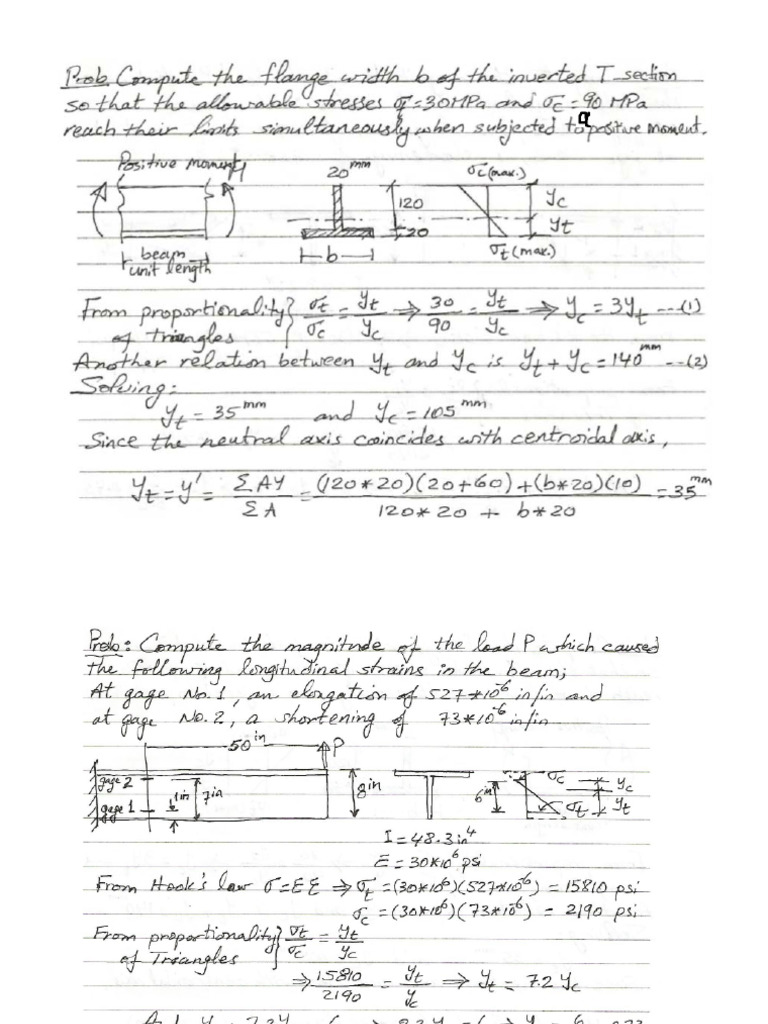 Prob. Compute the flange width b of the inverted T-section
so that the allowable stresses σt=30MPa and σc=90 MPa
reach their limits simultaneously when subjected to a positive moment.
Positive moment
20mm
σc(max.)
120
yc
20
yt
b
σt(max.)
beam
unit length
From proportionality } σt/σc = yt/yc ⇒ 30/90 = yt/yc ⇒ yc = 3yt ---(1)
of triangles
Another relation between yt and yc is yt + yc = 140mm --(2)
Solving:
yt = 35mm and yc = 105mm
Since the neutral axis coincides with centroidal axis,
yt = y' = ΣAY/ΣA = ((120*20)(20+60)+(b*20)(10))/(120*20 + b*20) = 35mm
Prob: Compute the magnitude of the load P which caused
the following longitudinal strains in the beam;
At gage No.1, an elongation of 527*10-6 in/in and
at gage No.2, a shortening of 73*10-6 in/in
50in
P
gage 2
gage 1
1in
7in
8in
6in
σc
yc
σt
yt
I=48.3in4
E=30*106 psi
From Hook's law σ=EƐ ⇒ σt=(30*106)(527*10-6) = 15810 psi
σc=(30*106)(73*10-6) = 2190 psi
From proportionality } σt/σc = yt/yc
of Triangles
⇒ 15810/2190 = yt/yc ⇒ yt = 7.2 yc